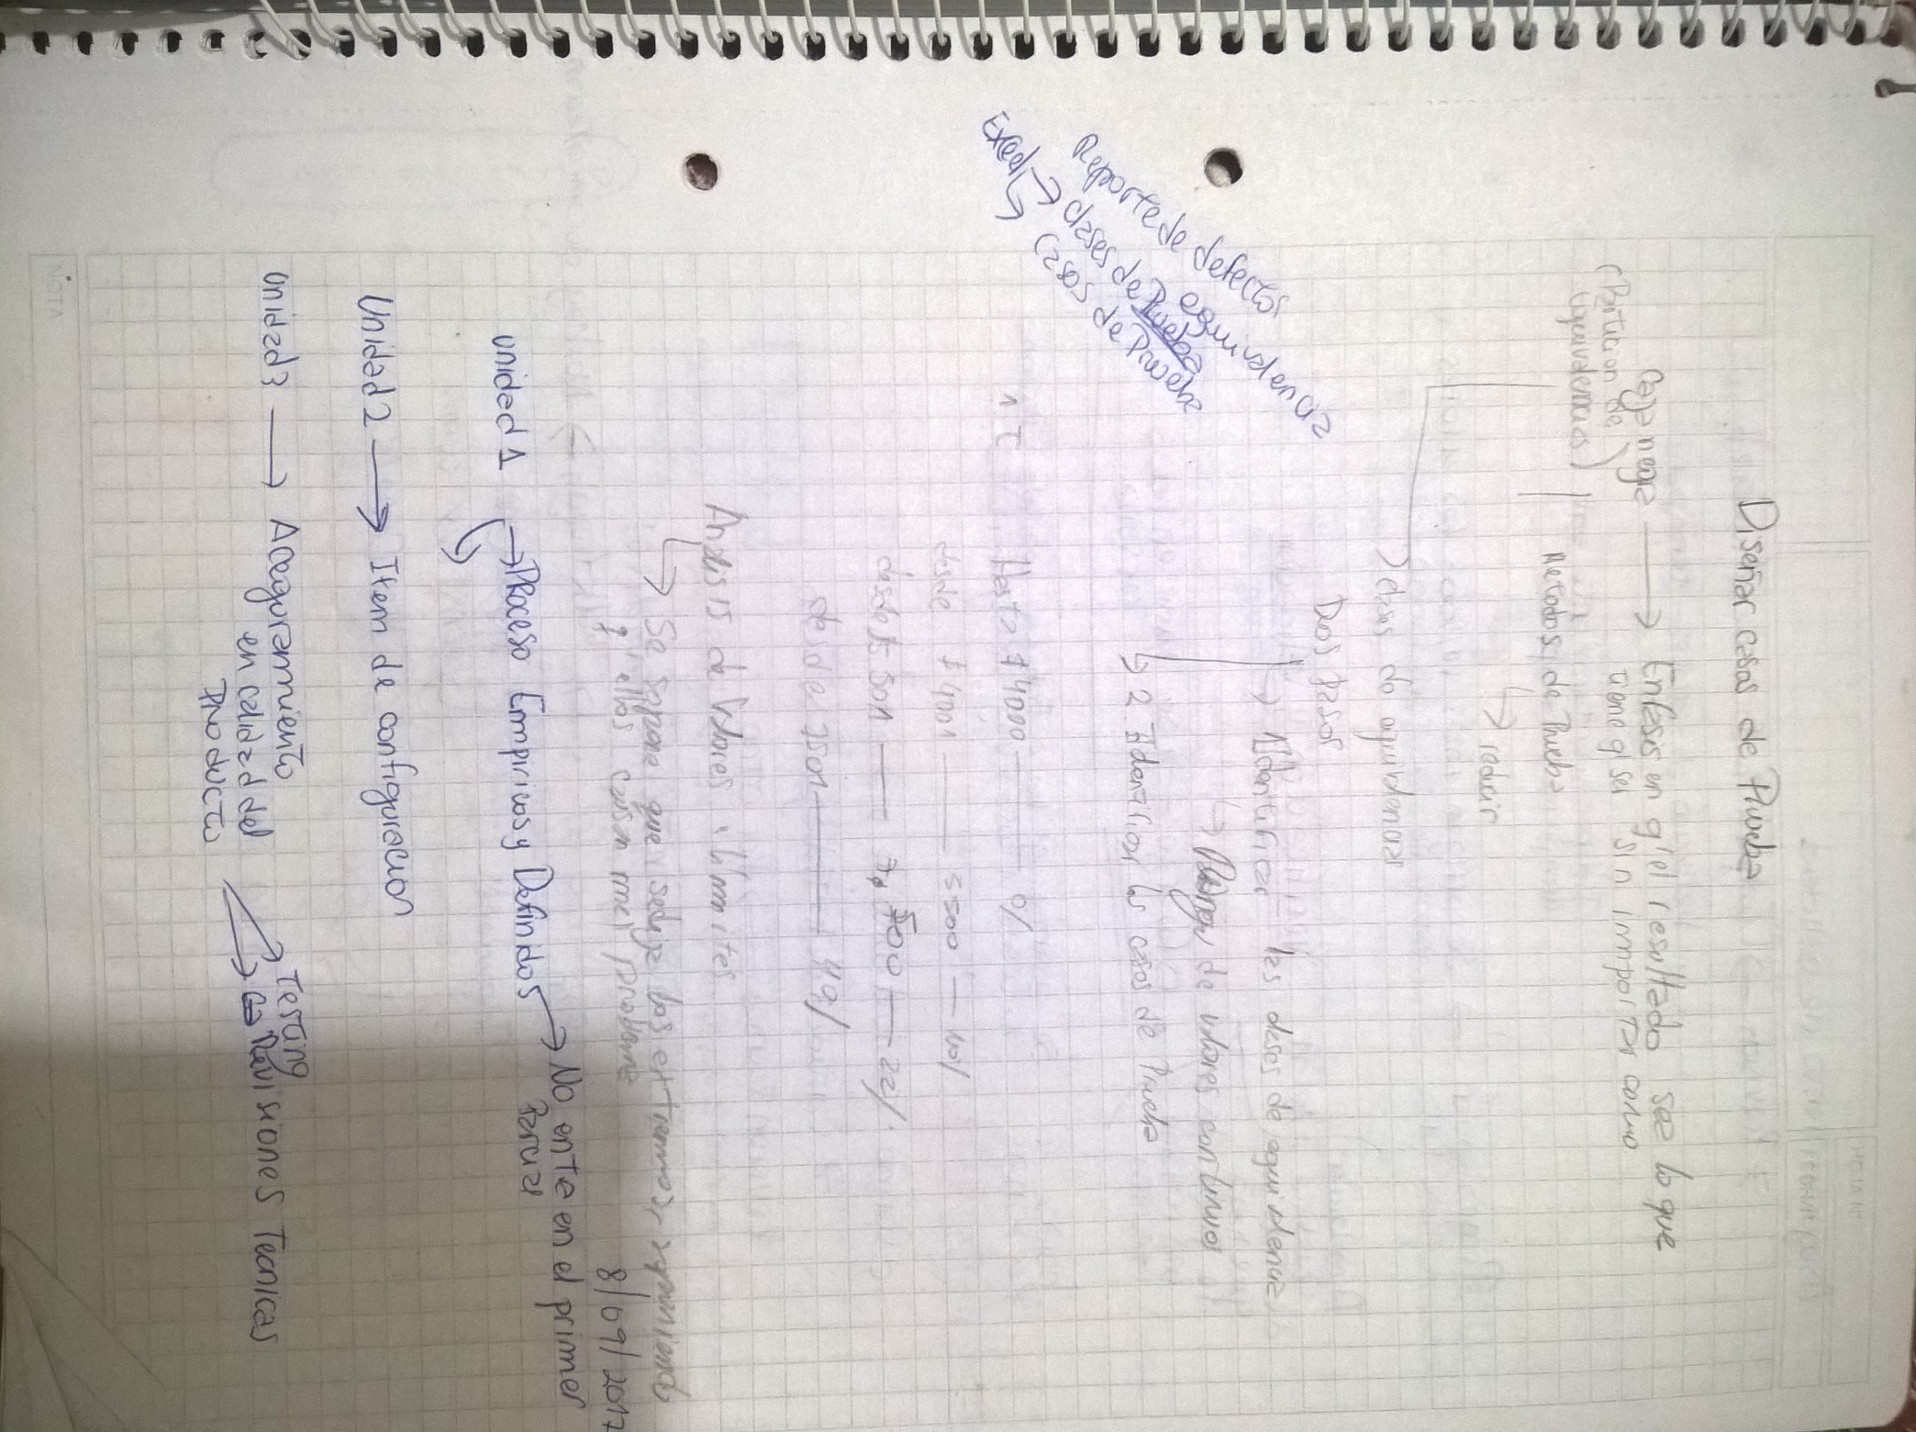 Diseñar casos de Prueba
Caja negra → Enfasis en q' el resultado sea lo que
tiene q' ser sin importar como
(Particion de
equivalencias)
Metodos de Prueba
→ reducir
→ clases de equivalencias
Dos pasos
→ 1 Identificar las clases de equivalencia
→ Rango de valores continuos
→ 2. Identificar los casos de Prueba
Reporte de defectos
Excel → clases de Prueba equivalencia
→ Casos de Prueba
Hasta $4000 — 0%
desde $4001 — 5500 — 10%
desde 5501 — 7500 — 22%
desde 7501 — 40%
Analisis de Valores limites
→ Se supone que se elija los extremos, suponiendo
q' ellos causan mas problema
8/09/2017
Unidad 1 → Proceso Empiricos y Definidos → No ente en el primer
Parcial
Unidad 2 → Item de configuracion
Unidad 3 → Aceguramiento
en calidad del
Producto
→ Testing
→ Revisiones Tecnicas